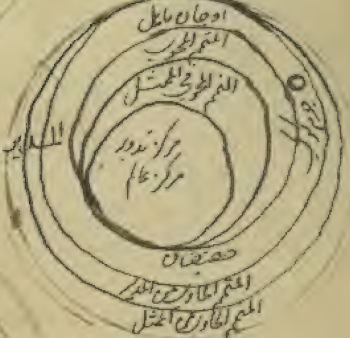 اوجان مایل
المتمم المحوی
المتمم المحوی فی الممثل
المدیر
مرکز تدویر
مرکز عالم
حضیضان
المتمم الحاوی من المدیر
المتمم الحاوی من الممثل